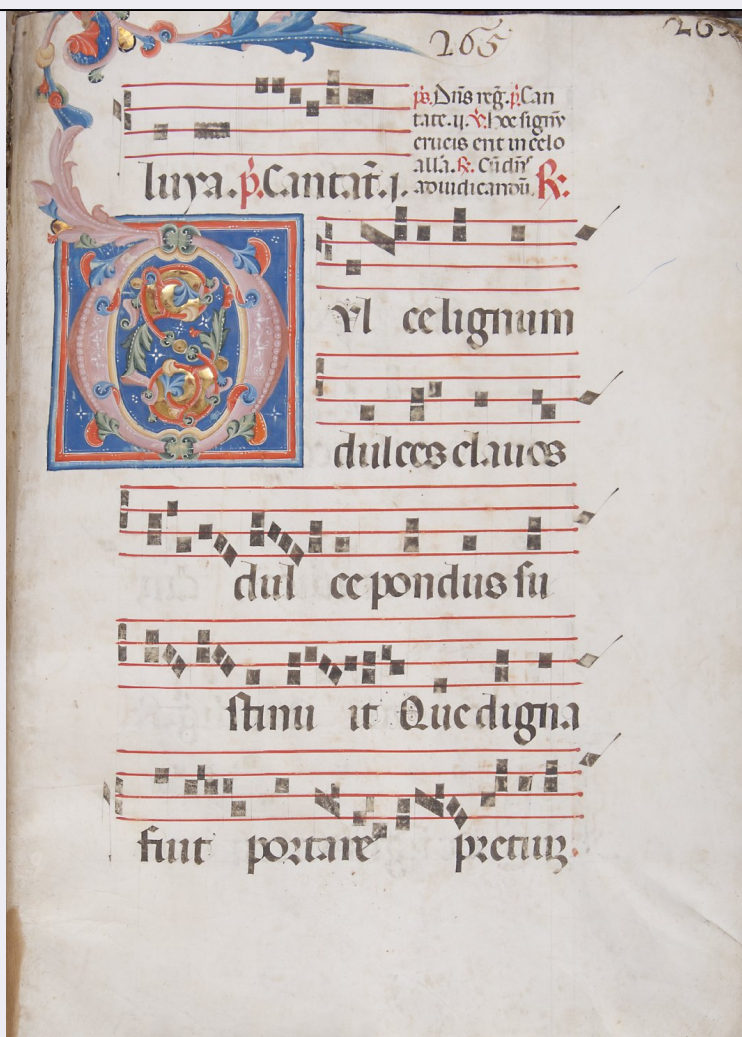 265
265
p̄s. Dn̄s reḡ. p̄. Can
tate. ij. ℣. hoc signū
crucis erit in celo
alla. ℟. Cū dn̄s
luya. p̄. Cantat̄. j. ad iudicandū. ℟:
Dul ce lignum
dulces clauos
dul ce pondus su
stinu it Que digna
fuit portare pretiuȝ.